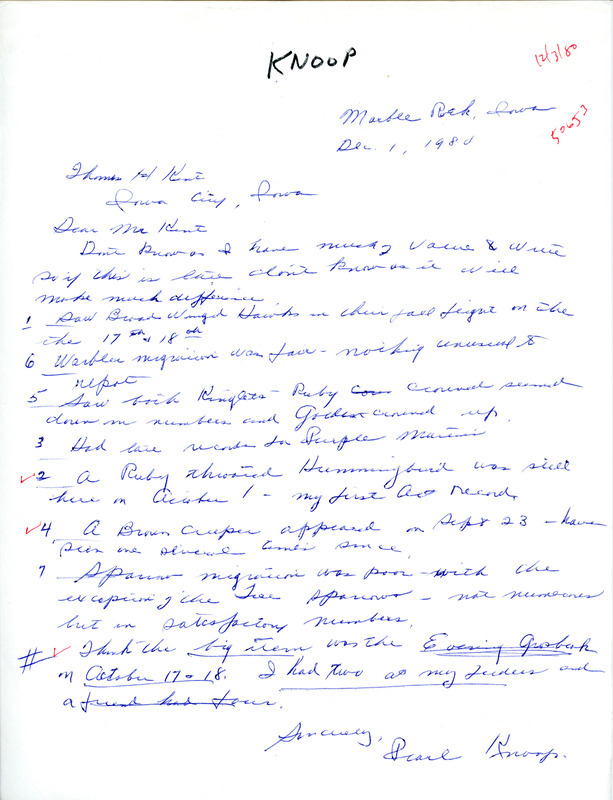 KNOOP
12/3/80
Marble Rock, Iowa
50653
Dec. 1, 1980
Thomas H Kent
Iowa City, Iowa
Dear Mr Kent
Don't know as I have much of value to write
so if this is late don't know as it will
make much difference
1 Saw Broad Winged Hawks in their fall flight on the
the 17th & 18th
6 Warbler migration was fair - nothing unusual to
report
5 Saw both Kinglets - Ruby crowned seemed
down in numbers and Golden crowned up.
3 Had late records for Purple Martin
2 A Ruby throated Hummingbird was still
here on October 1 - my first Oct record
4 A Brown Creeper appeared on Sept 23 - have
seen one several times since.
7 Sparrow migration was poor with the
exception of the Tree Sparrows - not numerous
but in satisfactory numbers.
# I think the big item was the Evening Grosbeak
on October 17-18. I had two at my feeders and
a friend had four.
Sincerely,
Pearl Knoop.